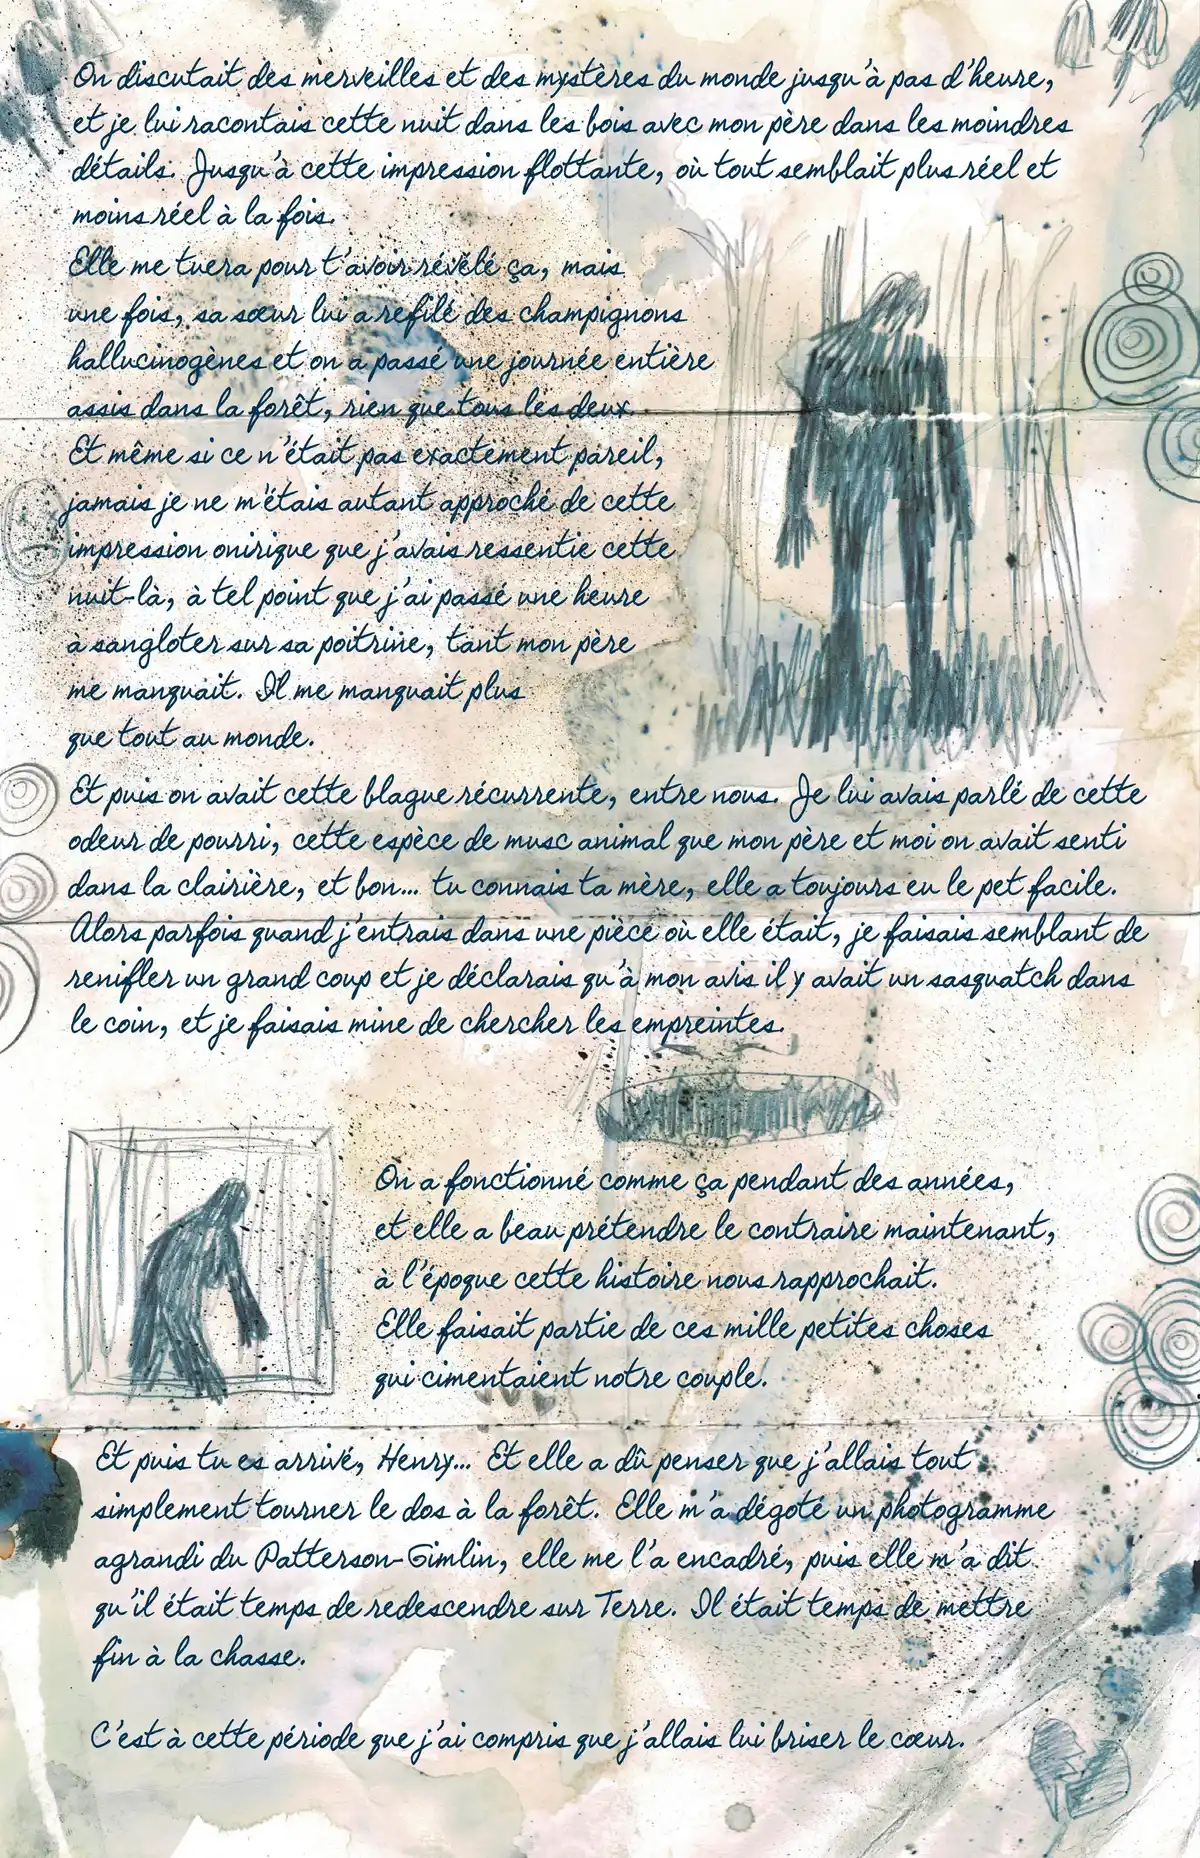 On discutait des merveilles et des mystères du monde jusqu'à pas d'heure,
et je lui racontais cette nuit dans les bois avec mon père dans les moindres
détails. Jusqu'à cette impression flottante, où tout semblait plus réel et
moins réel à la fois.
Elle me tuera pour t'avoir révélé ça, mais
une fois, sa sœur lui a refilé des champignons
hallucinogènes et on a passé une journée entière
assis dans la forêt, rien que tous les deux.
Et même si ce n'était pas exactement pareil,
jamais je ne m'étais autant approché de cette
impression onirique que j'avais ressentie cette
nuit-là, à tel point que j'ai passé une heure
à sangloter sur sa poitrine, tant mon père
me manquait. Il me manquait plus
que tout au monde.
Et puis on avait cette blague récurrente, entre nous. Je lui avais parlé de cette
odeur de pourri, cette espèce de musc animal que mon père et moi on avait senti
dans la clairière, et bon... tu connais ta mère, elle a toujours eu le pet facile.
Alors parfois quand j'entrais dans une pièce où elle était, je faisais semblant de
renifler un grand coup et je déclarais qu'à mon avis il y avait un sasquatch dans
le coin, et je faisais mine de chercher les empreintes.
On a fonctionné comme ça pendant des années,
et elle a beau prétendre le contraire maintenant,
à l'époque cette histoire nous rapprochait.
Elle faisait partie de ces mille petites choses
qui cimentaient notre couple.
Et puis tu es arrivé, Henry... Et elle a dû penser que j'allais tout
simplement tourner le dos à la forêt. Elle m'a dégoté un photogramme
agrandi du Patterson-Gimlin, elle me l'a encadré, puis elle m'a dit
qu'il était temps de redescendre sur Terre. Il était temps de mettre
fin à la chasse.
C'est à cette période que j'ai compris que j'allais lui briser le cœur.